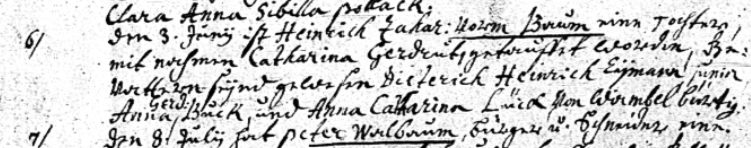 Clara Anna Sibilla Pollack.
6/ den 3. Junij ist Heinrich Zachar: Vorm Baum eine Tochter,
mit nahmen Catharina Gerdrut getauffet worden, Ge-
Vatteren seynd gewesen Dieterich Heinrich Eymann junior
Anna Gerdr. Buck, und Anna Catharina Lück von Wormbel bürtig.
7/ den 8. Julij hat Peter Walbaum, bürger u. Schneider eine